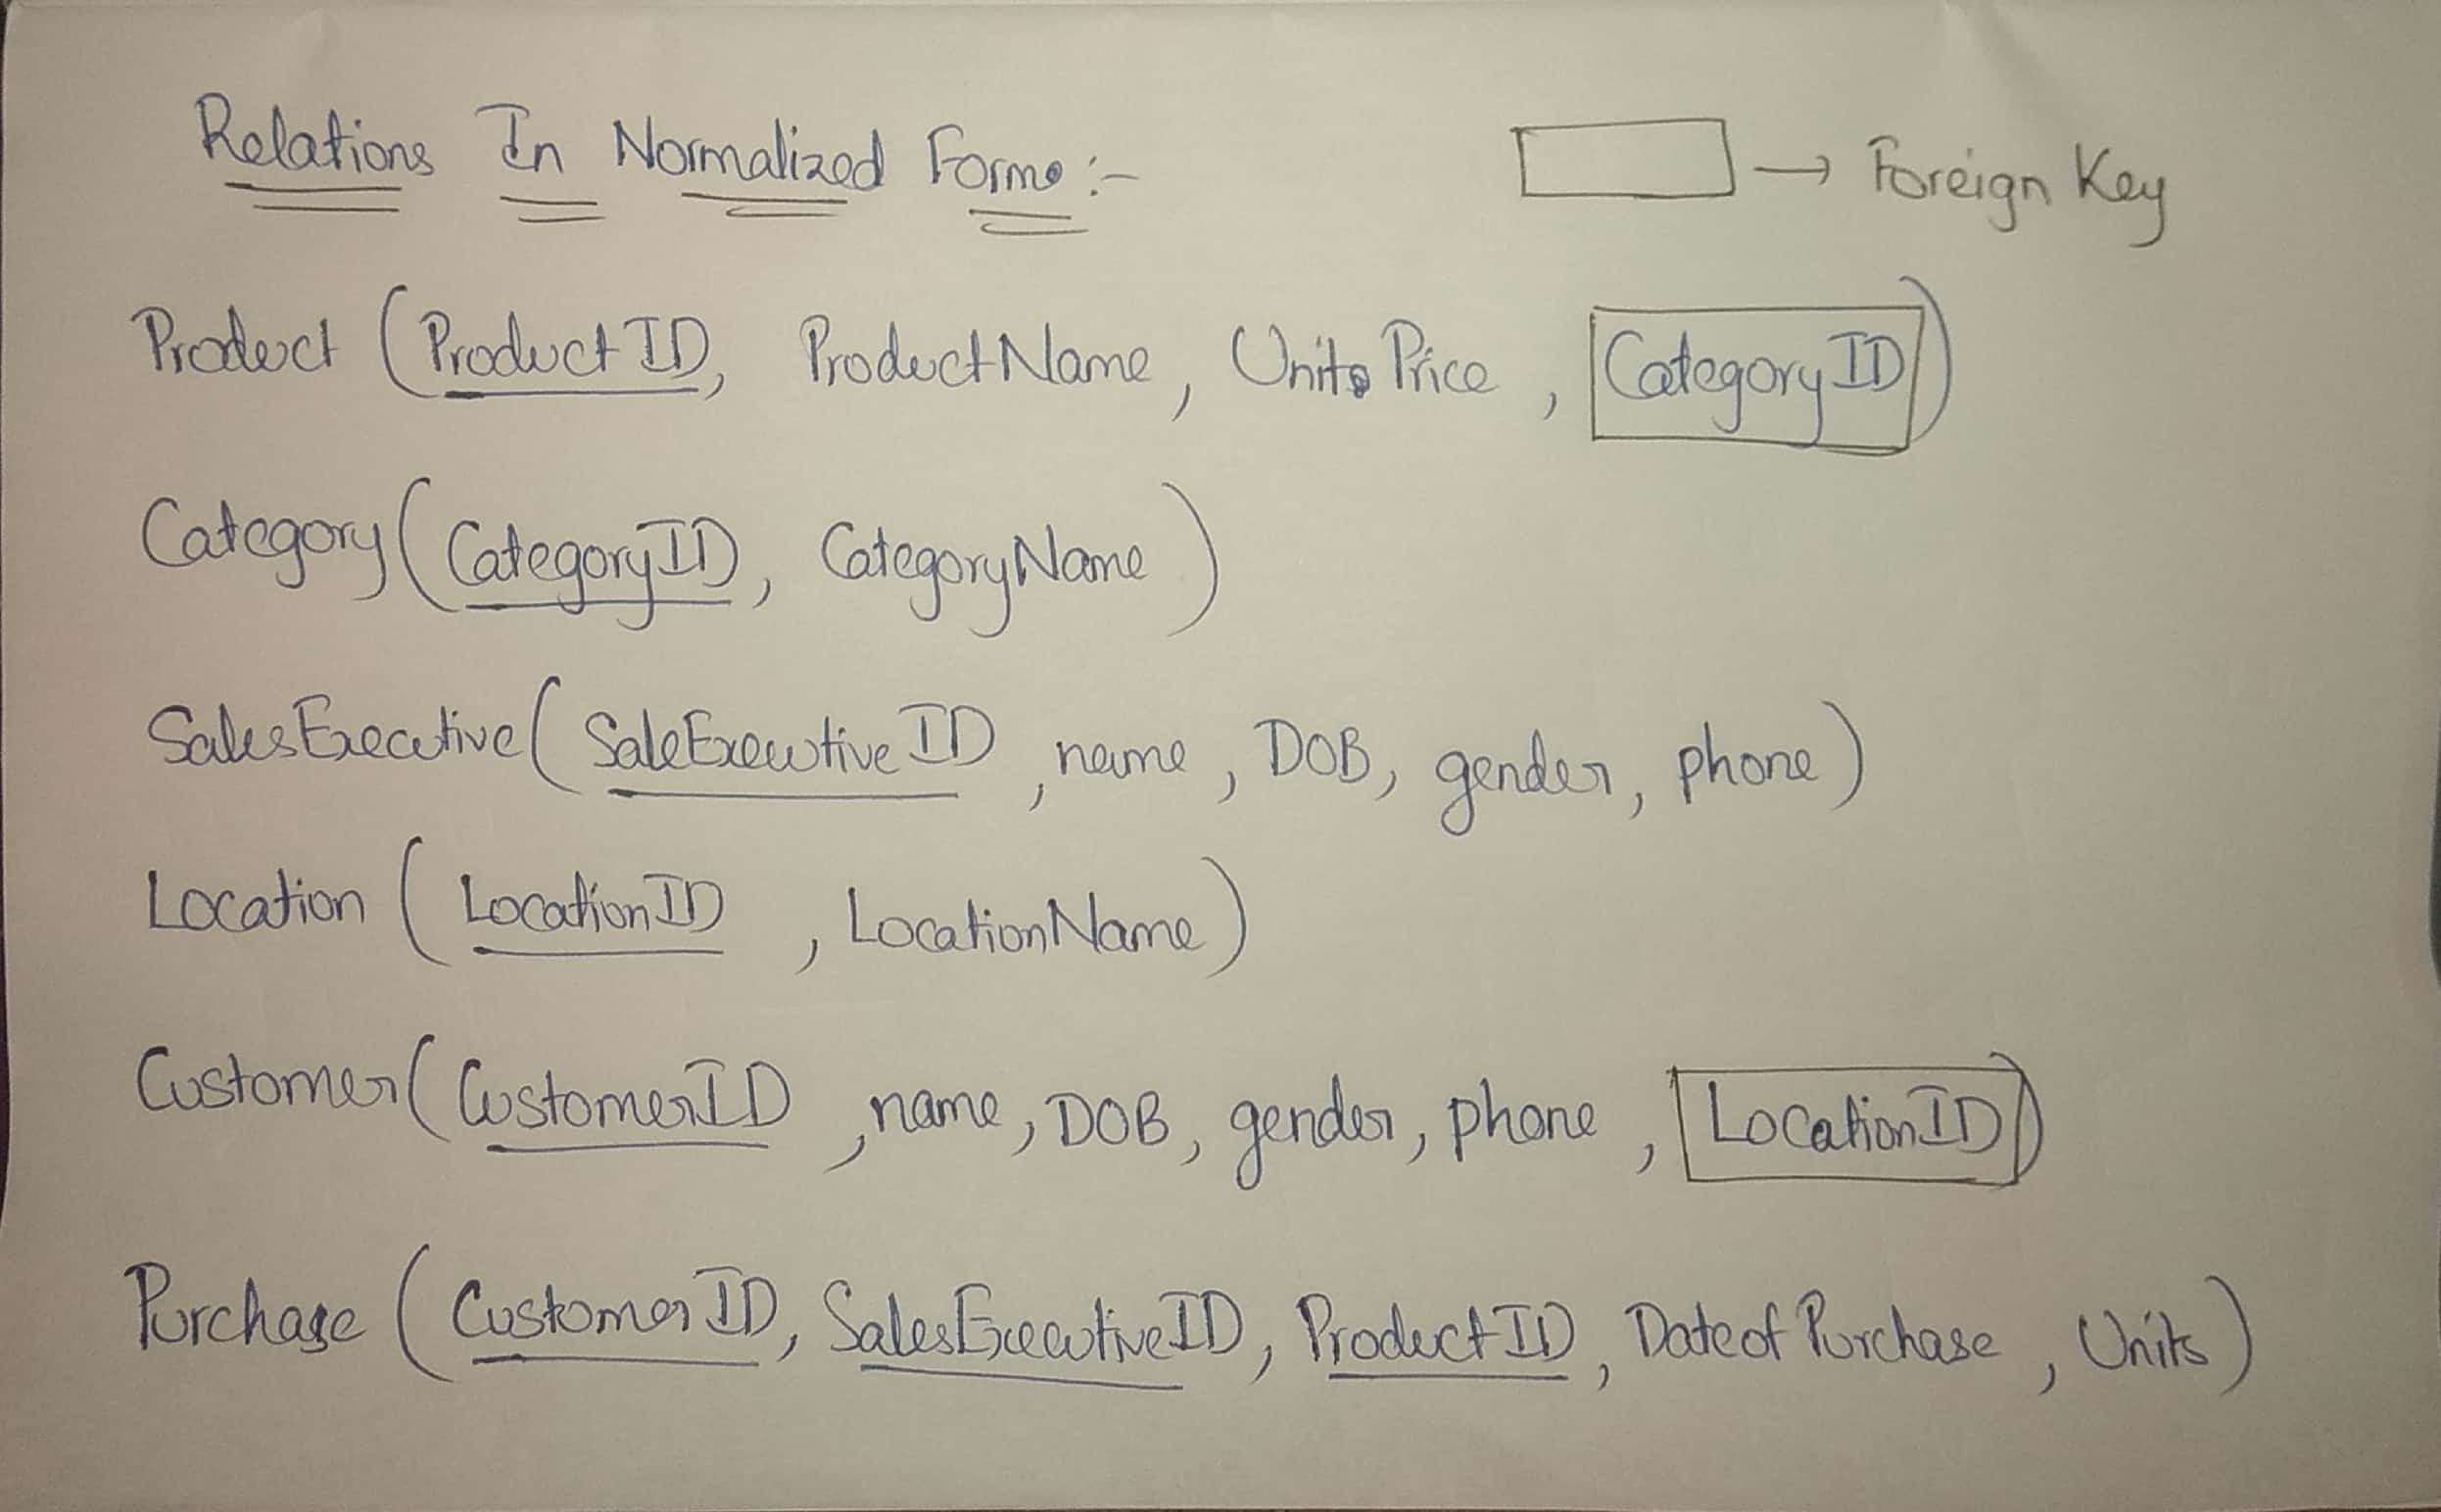 Relations In Normalized Forms :-
→ Foreign Key
Product (ProductID, ProductName, Units Price, CategoryID)
Category (CategoryID, CategoryName)
SalesExecutive (SaleExecutiveID, name, DOB, gender, phone)
Location (LocationID, LocationName)
Customer (CustomerID, name, DOB, gender, phone, LocationID)
Purchase (CustomerID, SalesExecutiveID, ProductID, Date of Purchase, Units)